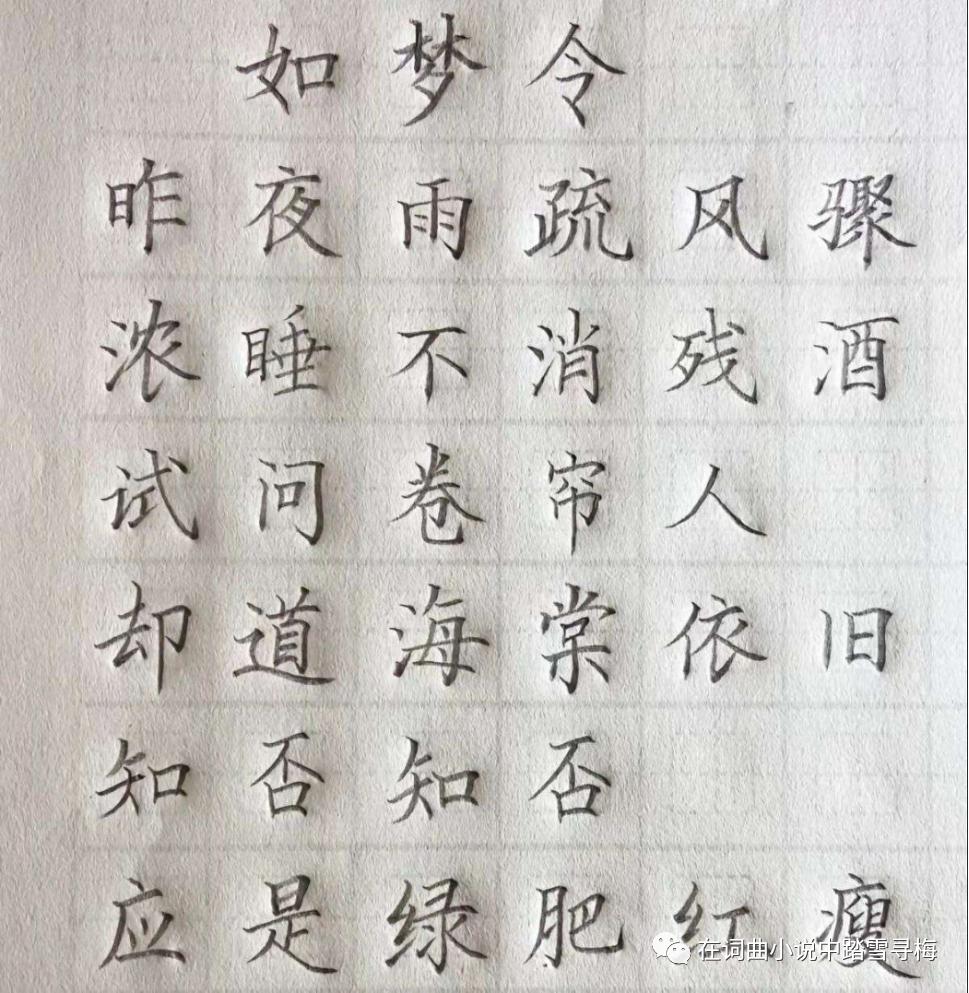 如梦令
昨夜雨疏风骤
浓睡不消残酒
试问卷帘人
却道海棠依旧
知否知否
应是绿肥红瘦
在词曲小说中踏雪寻梅